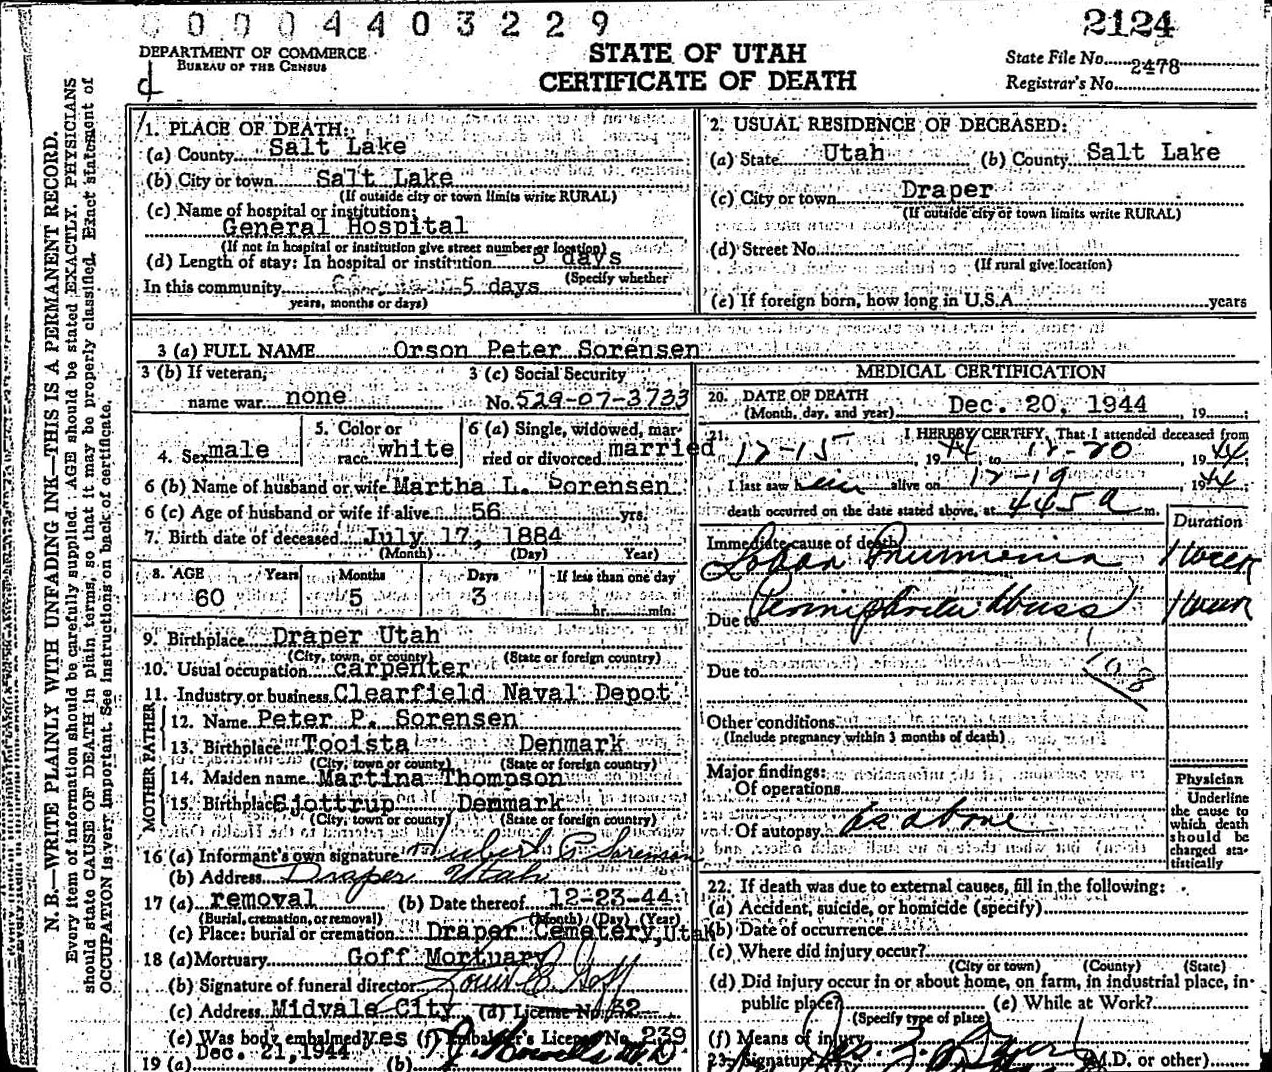 0 0 0 4 4 0 3 2 2 9
2124
DEPARTMENT OF COMMERCE
BUREAU OF THE CENSUS
d
STATE OF UTAH
CERTIFICATE OF DEATH
State File No. 2478
Registrar's No.
N. B.—WRITE PLAINLY WITH UNFADING INK—THIS IS A PERMANENT RECORD.
Every item of information should be carefully supplied. AGE should be stated EXACTLY. PHYSICIANS
should state CAUSE OF DEATH in plain terms, so that it may be properly classified. Exact statement of
OCCUPATION is very important. See instructions on back of certificate.
1. PLACE OF DEATH:
(a) County Salt Lake
(b) City or town Salt Lake
(If outside city or town limits write RURAL)
(c) Name of hospital or institution:
General Hospital
(If not in hospital or institution give street number or location)
(d) Length of stay: In hospital or institution 5 days
(Specify whether
In this community 5 days
years, months or days)
2. USUAL RESIDENCE OF DECEASED:
(a) State Utah (b) County Salt Lake
(c) City or town Draper
(If outside city or town limits write RURAL)
(d) Street No.
(If rural give location)
(e) If foreign born, how long in U.S.A. years
3 (a) FULL NAME Orson Peter Sorensen
3 (b) If veteran, 3 (c) Social Security
name war none No. 529-07-3733
4. Sex male
5. Color or
race white
6 (a) Single, widowed, mar-
ried or divorced married
6 (b) Name of husband or wife Martha L. Sorensen
6 (c) Age of husband or wife if alive 56 yrs.
7. Birth date of deceased July 17, 1884
(Month) (Day) Year)
8. AGE Years Months Days If less than one day
60 5 3 hr. min.
9. Birthplace Draper Utah
(City, town, or county) (State or foreign country)
10. Usual occupation carpenter
11. Industry or business Clearfield Naval Depot
FATHER
12. Name Peter P. Sorensen
13. Birthplace Tooista Denmark
(City, town or county) (State or foreign country)
MOTHER
14. Maiden name Martina Thompson
15. Birthplace Gjottrup Denmark
(City, town or county) (State or foreign country)
16 (a) Informant's own signature Hubert P Sorenson
(b) Address Draper Utah
17 (a) removal (b) Date thereof 12-23-44
(Burial, cremation, or removal) (Month) (Day) (Year)
(c) Place: burial or cremation Draper Cemetery, Utah
18 (a) Mortuary Goff Mortuary
(b) Signature of funeral director Goff
(c) Address Midvale City (d) License No. 132
(e) Was body embalmed yes (f) Embalmer's License No. 239
19 (a) Dec. 21, 1944 (b)
MEDICAL CERTIFICATION
20. DATE OF DEATH
(Month, day, and year) Dec. 20, 1944, 19
21. I HEREBY CERTIFY, That I attended deceased from
12-15, 1944 to 12-20 1944
I last saw him alive on 12-19 1944
death occurred on the date stated above, at 445 a m.
Duration
Immediate cause of death
Lobar Pneumonia 1 week
Due to 1 week
Due to
108
Other conditions
(Include pregnancy within 3 months of death)
Major findings:
Of operations
Of autopsy as above
Physician
Underline
the cause to
which death
should be
charged sta-
tistically
22. If death was due to external causes, fill in the following:
(a) Accident, suicide, or homicide (specify)
(b) Date of occurrence
(c) Where did injury occur?
(City or town) (County) (State)
(d) Did injury occur in or about home, on farm, in industrial place, in
public place? (e) While at Work?
(Specify type of place)
(f) Means of injury
23. Signature (M.D. or other)